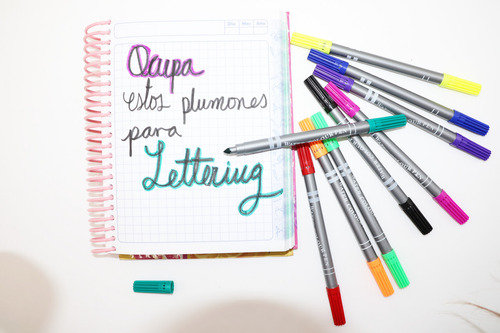 Ocupa
estos plumones
para
Lettering